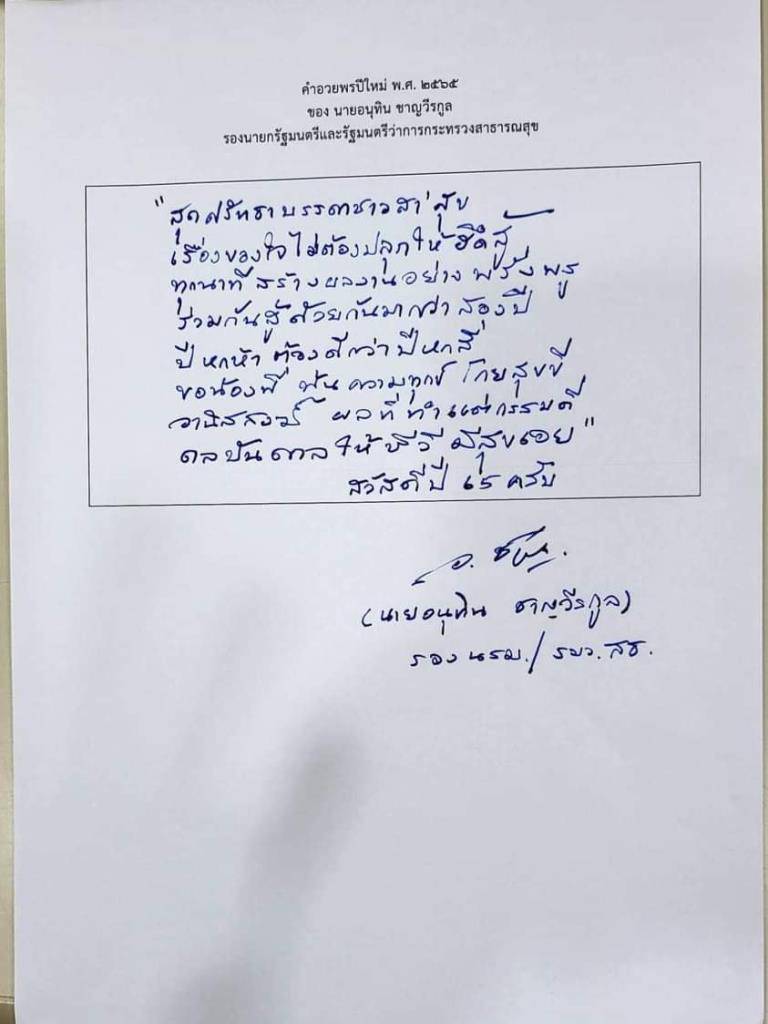 คำอวยพรปีใหม่ พ.ศ. ๒๕๖๕
ของ นายอนุทิน ชาญวีรกูล
รองนายกรัฐมนตรีและรัฐมนตรีว่าการกระทรวงสาธารณสุข
"สุดศรัทธาบรรดาชาวสา'สุข
เรื่องของใจไม่ต้องปลุกให้ฮึดสู้
ทุกนาทีสร้างผลงานอย่างพรั่งพรู
ร่วมกันสู้ด้วยกันมากว่าสองปี
ปีหกห้าต้องดีกว่าปีหกสี่
ขอน้องพี่ พ้นความทุกข์ โกยสุขขี
อานิสสงฆ์ ผลที่ทำแต่กรรมดี
ดลบันดาลให้ชีวีมีสุขเอย"
สวัสดีปี ๖๕ ครับ
(นายอนุทิน ชาญวีรกูล)
รอง นรม./รมว.สธ.